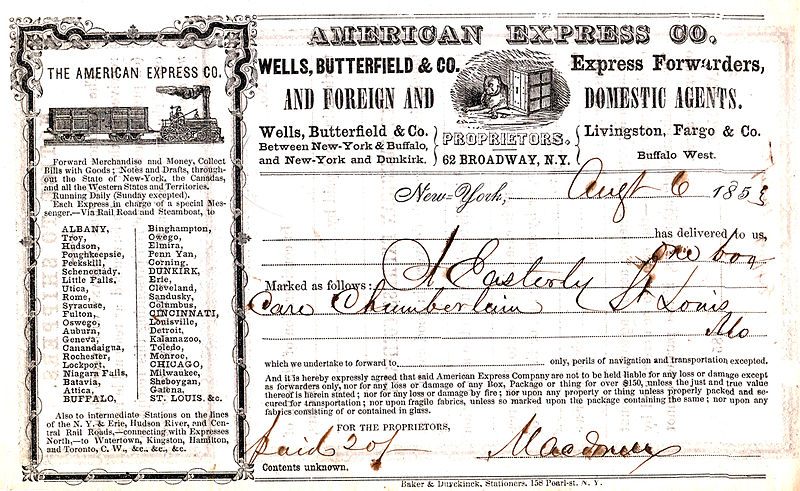 THE AMERICAN EXPRESS CO.
Forward Merchandise and Money, Collect
Bills with Goods; Notes and Drafts, through-
out the State of New-York, the Canadas,
and all the Western States and Territories.
Running Daily (Sunday excepted).
Each Express in charge of a special Mes-
senger.—Via Rail Road and Steamboat, to
ALBANY,
Troy,
Hudson,
Poughkeepsie,
Peekskill,
Schenectady.
Little Falls,
Utica,
Rome,
Syracuse,
Fulton,
Oswego,
Auburn,
Geneva,
Canandaigna,
Rochester,
Lockport,
Niagara Falls,
Batavia,
Attica,
BUFFALO,
Binghampton,
Owego,
Elmira,
Penn Yan,
Corning.
DUNKIRK,
Erie,
Cleveland,
Sandusky,
Columbus,
CINCINNATI,
Louisville,
Detroit,
Kalamazoo,
Toledo,
Monroe,
CHICAGO,
Milwaukee,
Sheboygan,
Galena,
ST. LOUIS, &c.
Also to intermediate Stations on the lines
of the N. Y. & Erie, Hudson River, and Cen-
tral Rail Roads,—connecting with Expresses
North,—to Watertown, Kingston, Hamilton,
and Toronto, C. W., &c., &c., &c.
AMERICAN EXPRESS CO.
WELLS, BUTTERFIELD & CO. Express Forwarders,
AND FOREIGN AND DOMESTIC AGENTS.
Wells, Butterfield & Co.
Between New-York & Buffalo,
and New-York and Dunkirk.
PROPRIETORS.
62 BROADWAY, N.Y.
Livingston, Fargo & Co.
Buffalo West.
New-York, Augt 6 1853
has delivered to us,
one box
Marked as follows: Easterly
Care Chamberlain St Louis
Mo
which we undertake to forward to only, perils of navigation and transportation excepted.
And it is hereby expressly agreed that said American Express Company are not to be held liable for any loss or damage except
as forwarders only, nor for any loss or damage of any Box, Package or thing for over $150, unless the just and true value
thereof is herein stated; nor for any loss or damage by fire; nor upon any property or thing unless properly packed and se-
cured for transportation; nor upon fragile fabrics, unless so marked upon the package containing the same; nor upon any
fabrics consisting of or contained in glass.
FOR THE PROPRIETORS,
paid 20/
Contents unknown.
Baker & Duyckinck, Stationers, 158 Pearl-st. N. Y.